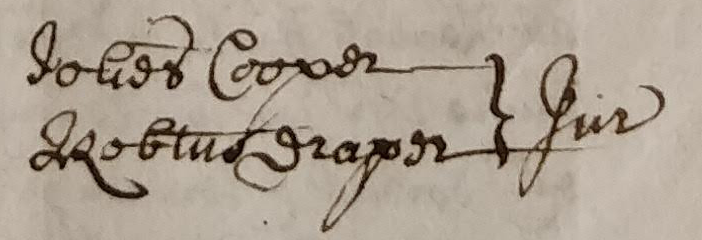 Johes Cooper
Robtus Draper } Jur